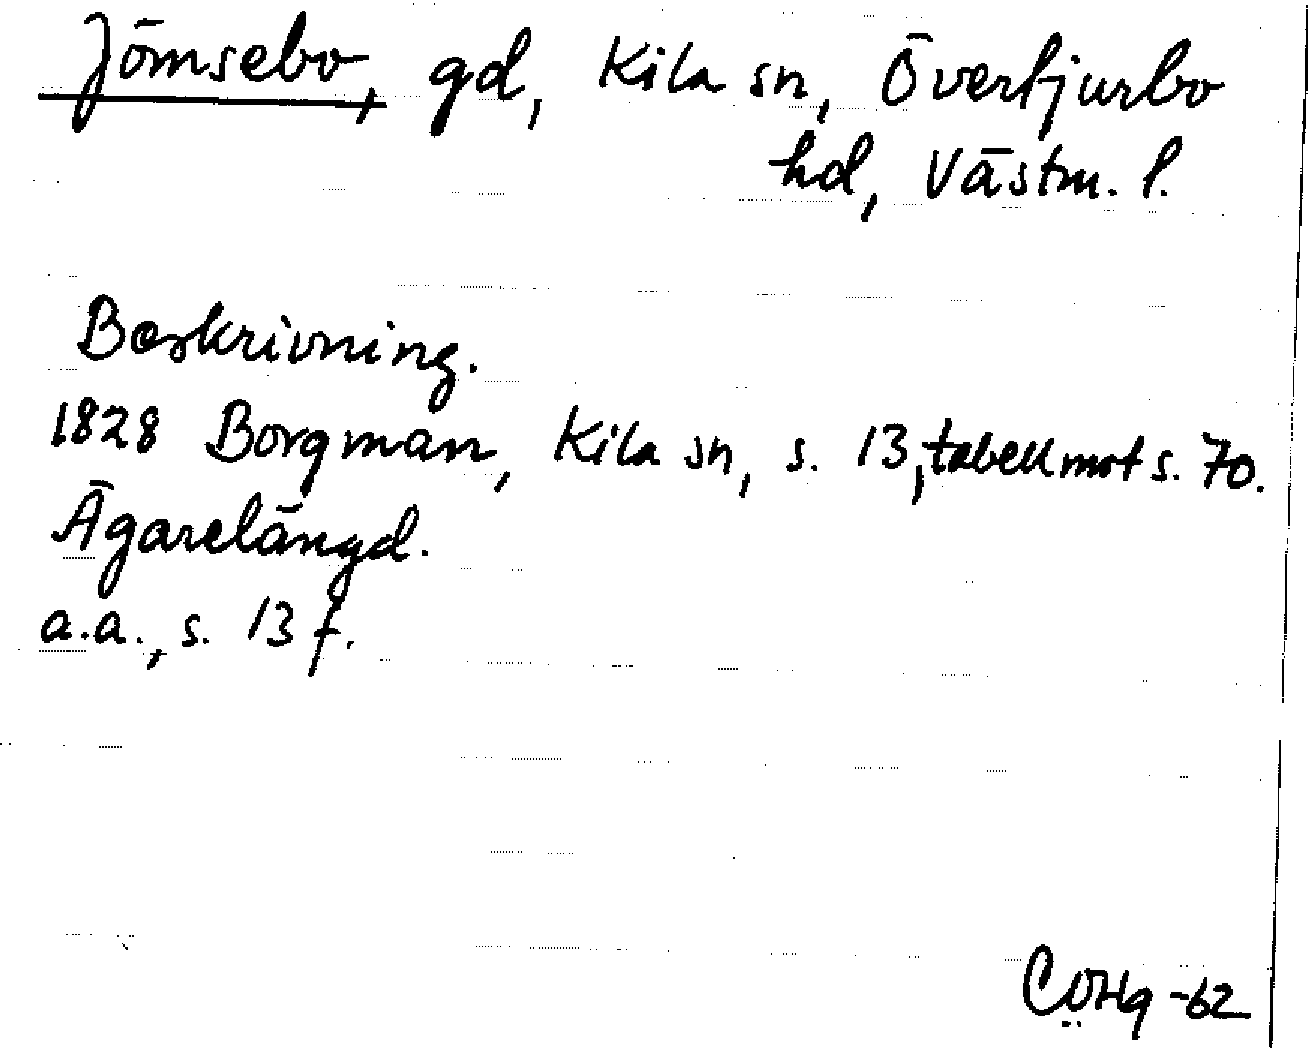 Jömsebo, gd, Kila sn, Övertjurbo
hd, Västm. l.
Beskrivning.
1828 Borgman, Kila sn, s. 13, tabell mot s. 70.
Ägarelängd.
a.a., s. 13 f.
-62